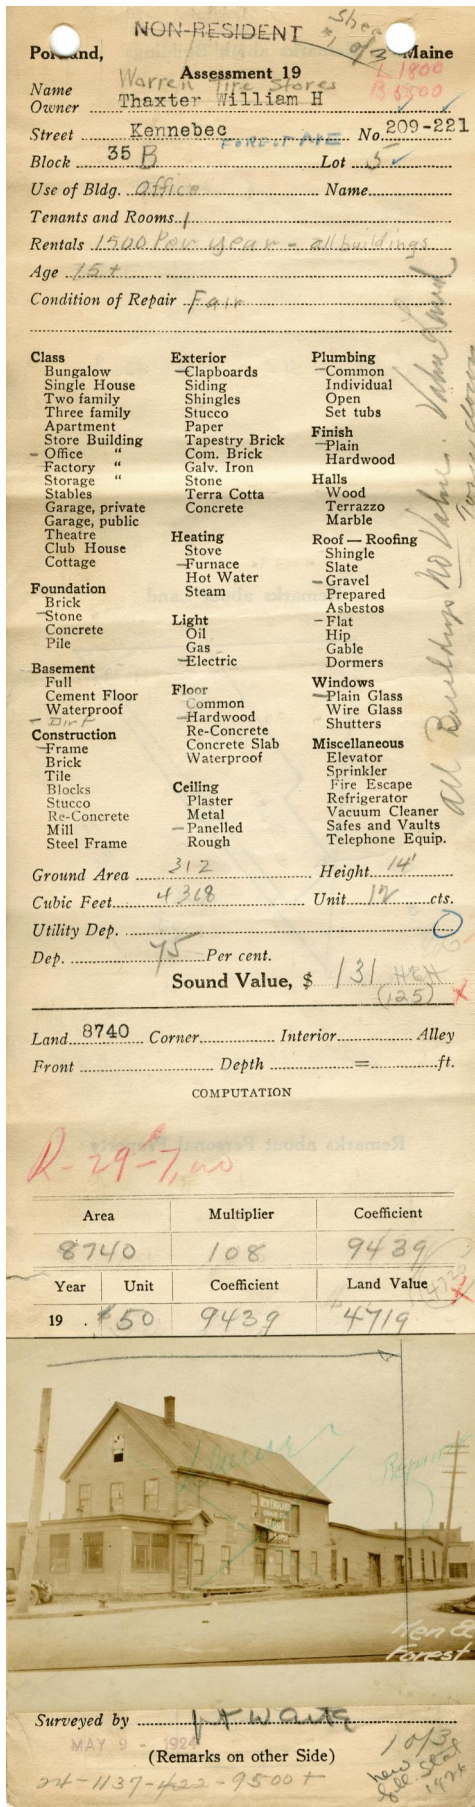 NON-RESIDENT
Sheet
#1 of 3
Portland, Maine
Assessment 19
L 1800
B 5500
Name Warren Tire Stores
Owner Thaxter William H
Street Kennebec FOREST AVE No. 209-221
Block 35 B Lot 5
Use of Bldg. Office Name
Tenants and Rooms 1
Rentals 1500 Per year - all buildings
Age 75+
Condition of Repair Fair
All Buildings No Value. Value Land
Torn down
Class
Bungalow
Single House
Two family
Three family
Apartment
Store Building
- Office "
- Factory "
Storage "
Stables
Garage, private
Garage, public
Theatre
Club House
Cottage
Foundation
Brick
- Stone
Concrete
Pile
Basement
Full
Cement Floor
Waterproof
- Dirt
Construction
- Frame
Brick
Tile
Blocks
Stucco
Re-Concrete
Mill
Steel Frame
Exterior
- Clapboards
Siding
Shingles
Stucco
Paper
Tapestry Brick
Com. Brick
Galv. Iron
Stone
Terra Cotta
Concrete
Heating
Stove
- Furnace
Hot Water
Steam
Light
Oil
Gas
- Electric
Floor
Common
- Hardwood
Re-Concrete
Concrete Slab
Waterproof
Ceiling
Plaster
Metal
- Panelled
Rough
Plumbing
- Common
Individual
Open
Set tubs
Finish
- Plain
Hardwood
Halls
Wood
Terrazzo
Marble
Roof — Roofing
Shingle
Slate
- Gravel
Prepared
Asbestos
- Flat
Hip
Gable
Dormers
Windows
- Plain Glass
Wire Glass
Shutters
Miscellaneous
Elevator
Sprinkler
Fire Escape
Refrigerator
Vacuum Cleaner
Safes and Vaults
Telephone Equip.
Ground Area 312 Height 14'
Cubic Feet 4368 Unit 12 cts.
Utility Dep.
Dep. 75 Per cent.
Sound Value, $ 131 HEH
(125) X
Land 8740 Corner Interior Alley
Front Depth = ft.
COMPUTATION
R-29-7,00
Area Multiplier Coefficient
8740 108 9439
Year Unit Coefficient Land Value
19 . $50 9439 4719
NEW ENGLAND
Ken &
Forest
Surveyed by
MAY 9 - 1924
(Remarks on other Side)
10/3
1926
24-1137-422-9500+